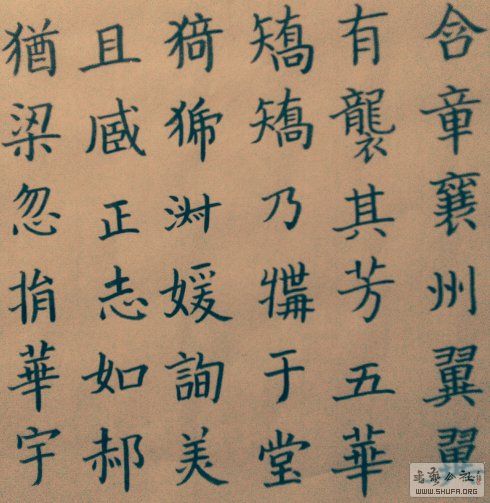 含章襄州翼翼
有襲其芳五華
矯矯乃于堂
猗淑媛詢美
且正志如郝
猶梁忽捐華宇
書法公社
WWW.SHUFA.ORG